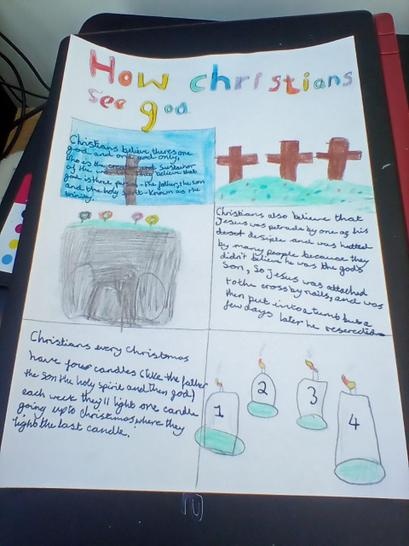 How christians
see god
Christians believe, theres one
god and one god only,
who is the and sustainor
of the They believe that
god is three person - the father, the son
and the holy spirit - known as the
trinity.
Christians also believe that
Jesus was by one of his
and was hatted
by many people because they
didn't believe he was the gods
Son, so Jesus was attached
to the cross by nails, and was
then put into a tomb but a
few days later he
Christians every Christmas
have four candles (like the father
the son the holy spirit and then god)
each week they'll light one candle
going up to christmas where they
light the last candle.
1
2
3
4